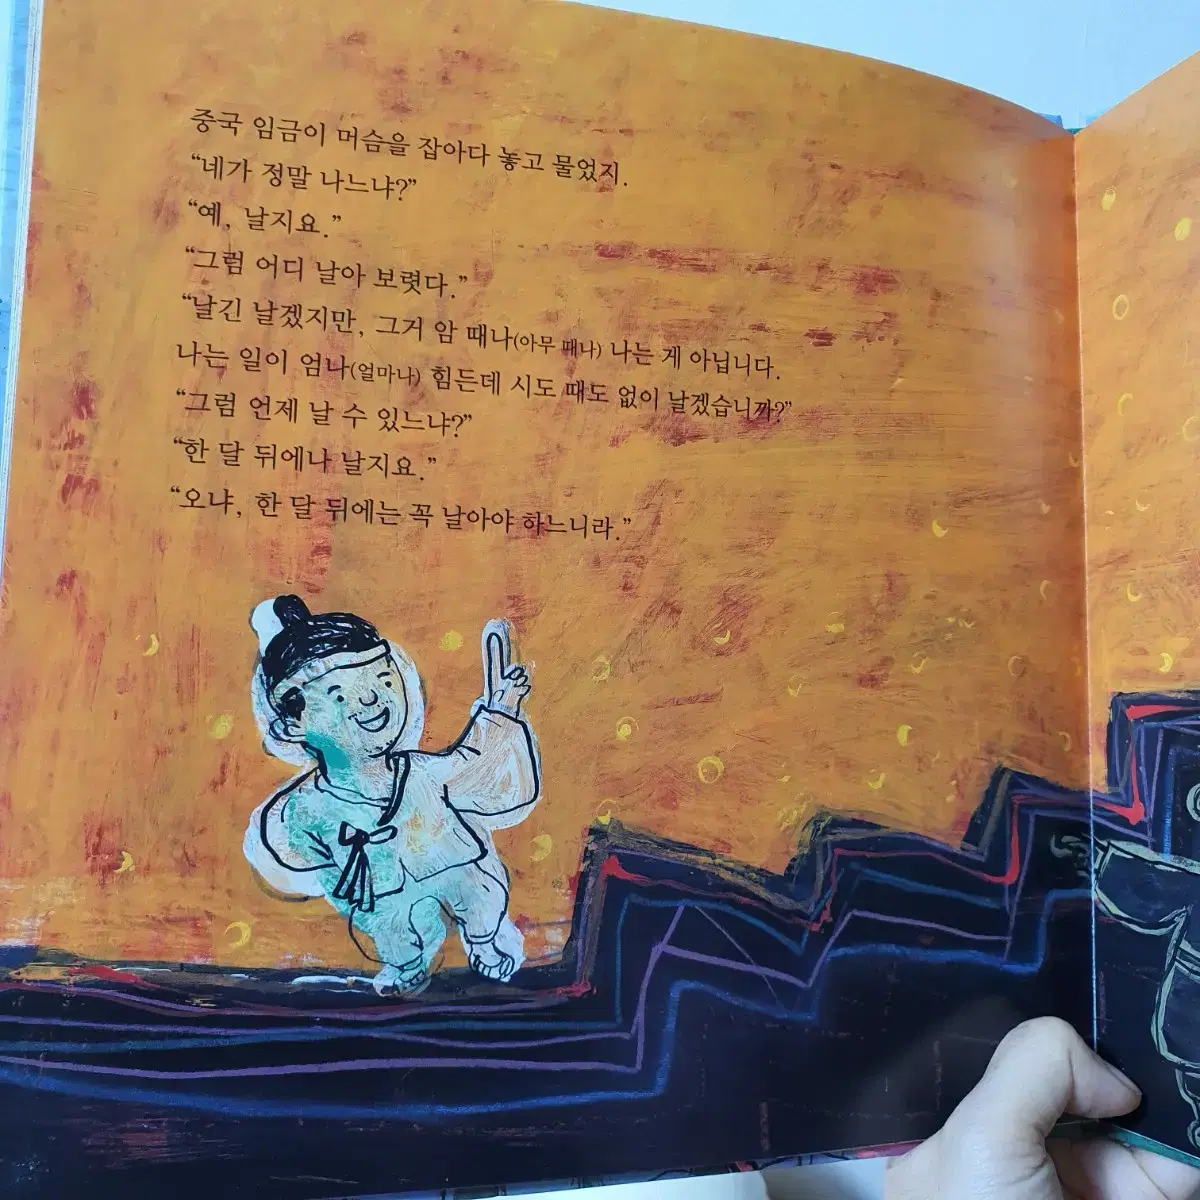 중국 임금이 머슴을 잡아다 놓고 물었지.
“네가 정말 나느냐?”
“예, 날지요.”
“그럼 어디 날아 보렷다.”
“날긴 날겠지만, 그거 암 때나(아무 때나) 나는 게 아닙니다.
나는 일이 엄나(얼마나) 힘든데 시도 때도 없이 날겠습니까?”
“그럼 언제 날 수 있느냐?”
“한 달 뒤에나 날지요.”
“오냐, 한 달 뒤에는 꼭 날아야 하느니라.”